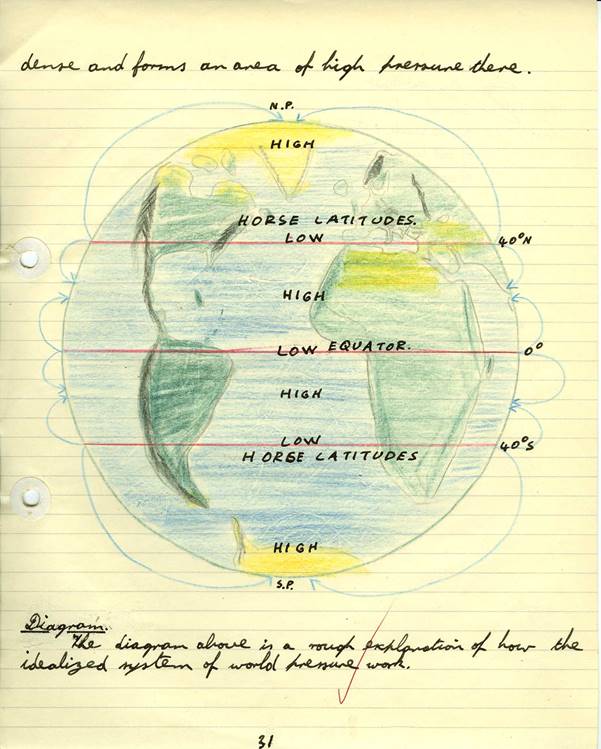 dense and forms an area of high pressure there.
N.P.
HIGH
HORSE LATITUDES.
LOW
40°N
HIGH
LOW EQUATOR.
0°
HIGH
LOW
40°S
HORSE LATITUDES
HIGH
S.P.
Diagram.
The diagram above is a rough explanation of how the
idealized system of world pressure work.
31